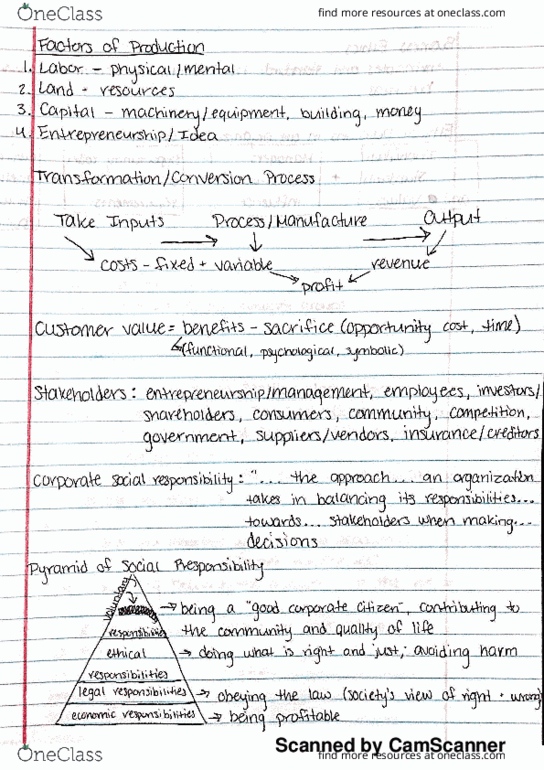 OneClass
find more resources at oneclass.com
Factors of Production
1. Labor - physical/mental
2. Land - resources
3. Capital - machinery/equipment, building, money
4. Entrepreneurship/Idea
Transformation/Conversion Process
Take Inputs Process/Manufacture Output
costs - fixed + variable revenue
profit
Customer value = benefits - sacrifice (opportunity cost, time)
(functional, psychological, symbolic)
Stakeholders: entrepreneurship/management, employees, investors/
shareholders, consumers, community, competition,
government, suppliers/vendors, insurance/creditors
Corporate social responsibility: "... the approach... an organization
takes in balancing its responsibilities...
towards... stakeholders when making...
decisions
Pyramid of Social Responsibility
voluntary
responsibilities
→ being a "good corporate citizen", contributing to
the community and quality of life
ethical
responsibilities
→ doing what is right and just, avoiding harm
legal responsibilities → obeying the law (society's view of right + wrong)
economic responsibilities → being profitable
Scanned by CamScanner
OneClass
find more resources at oneclass.com